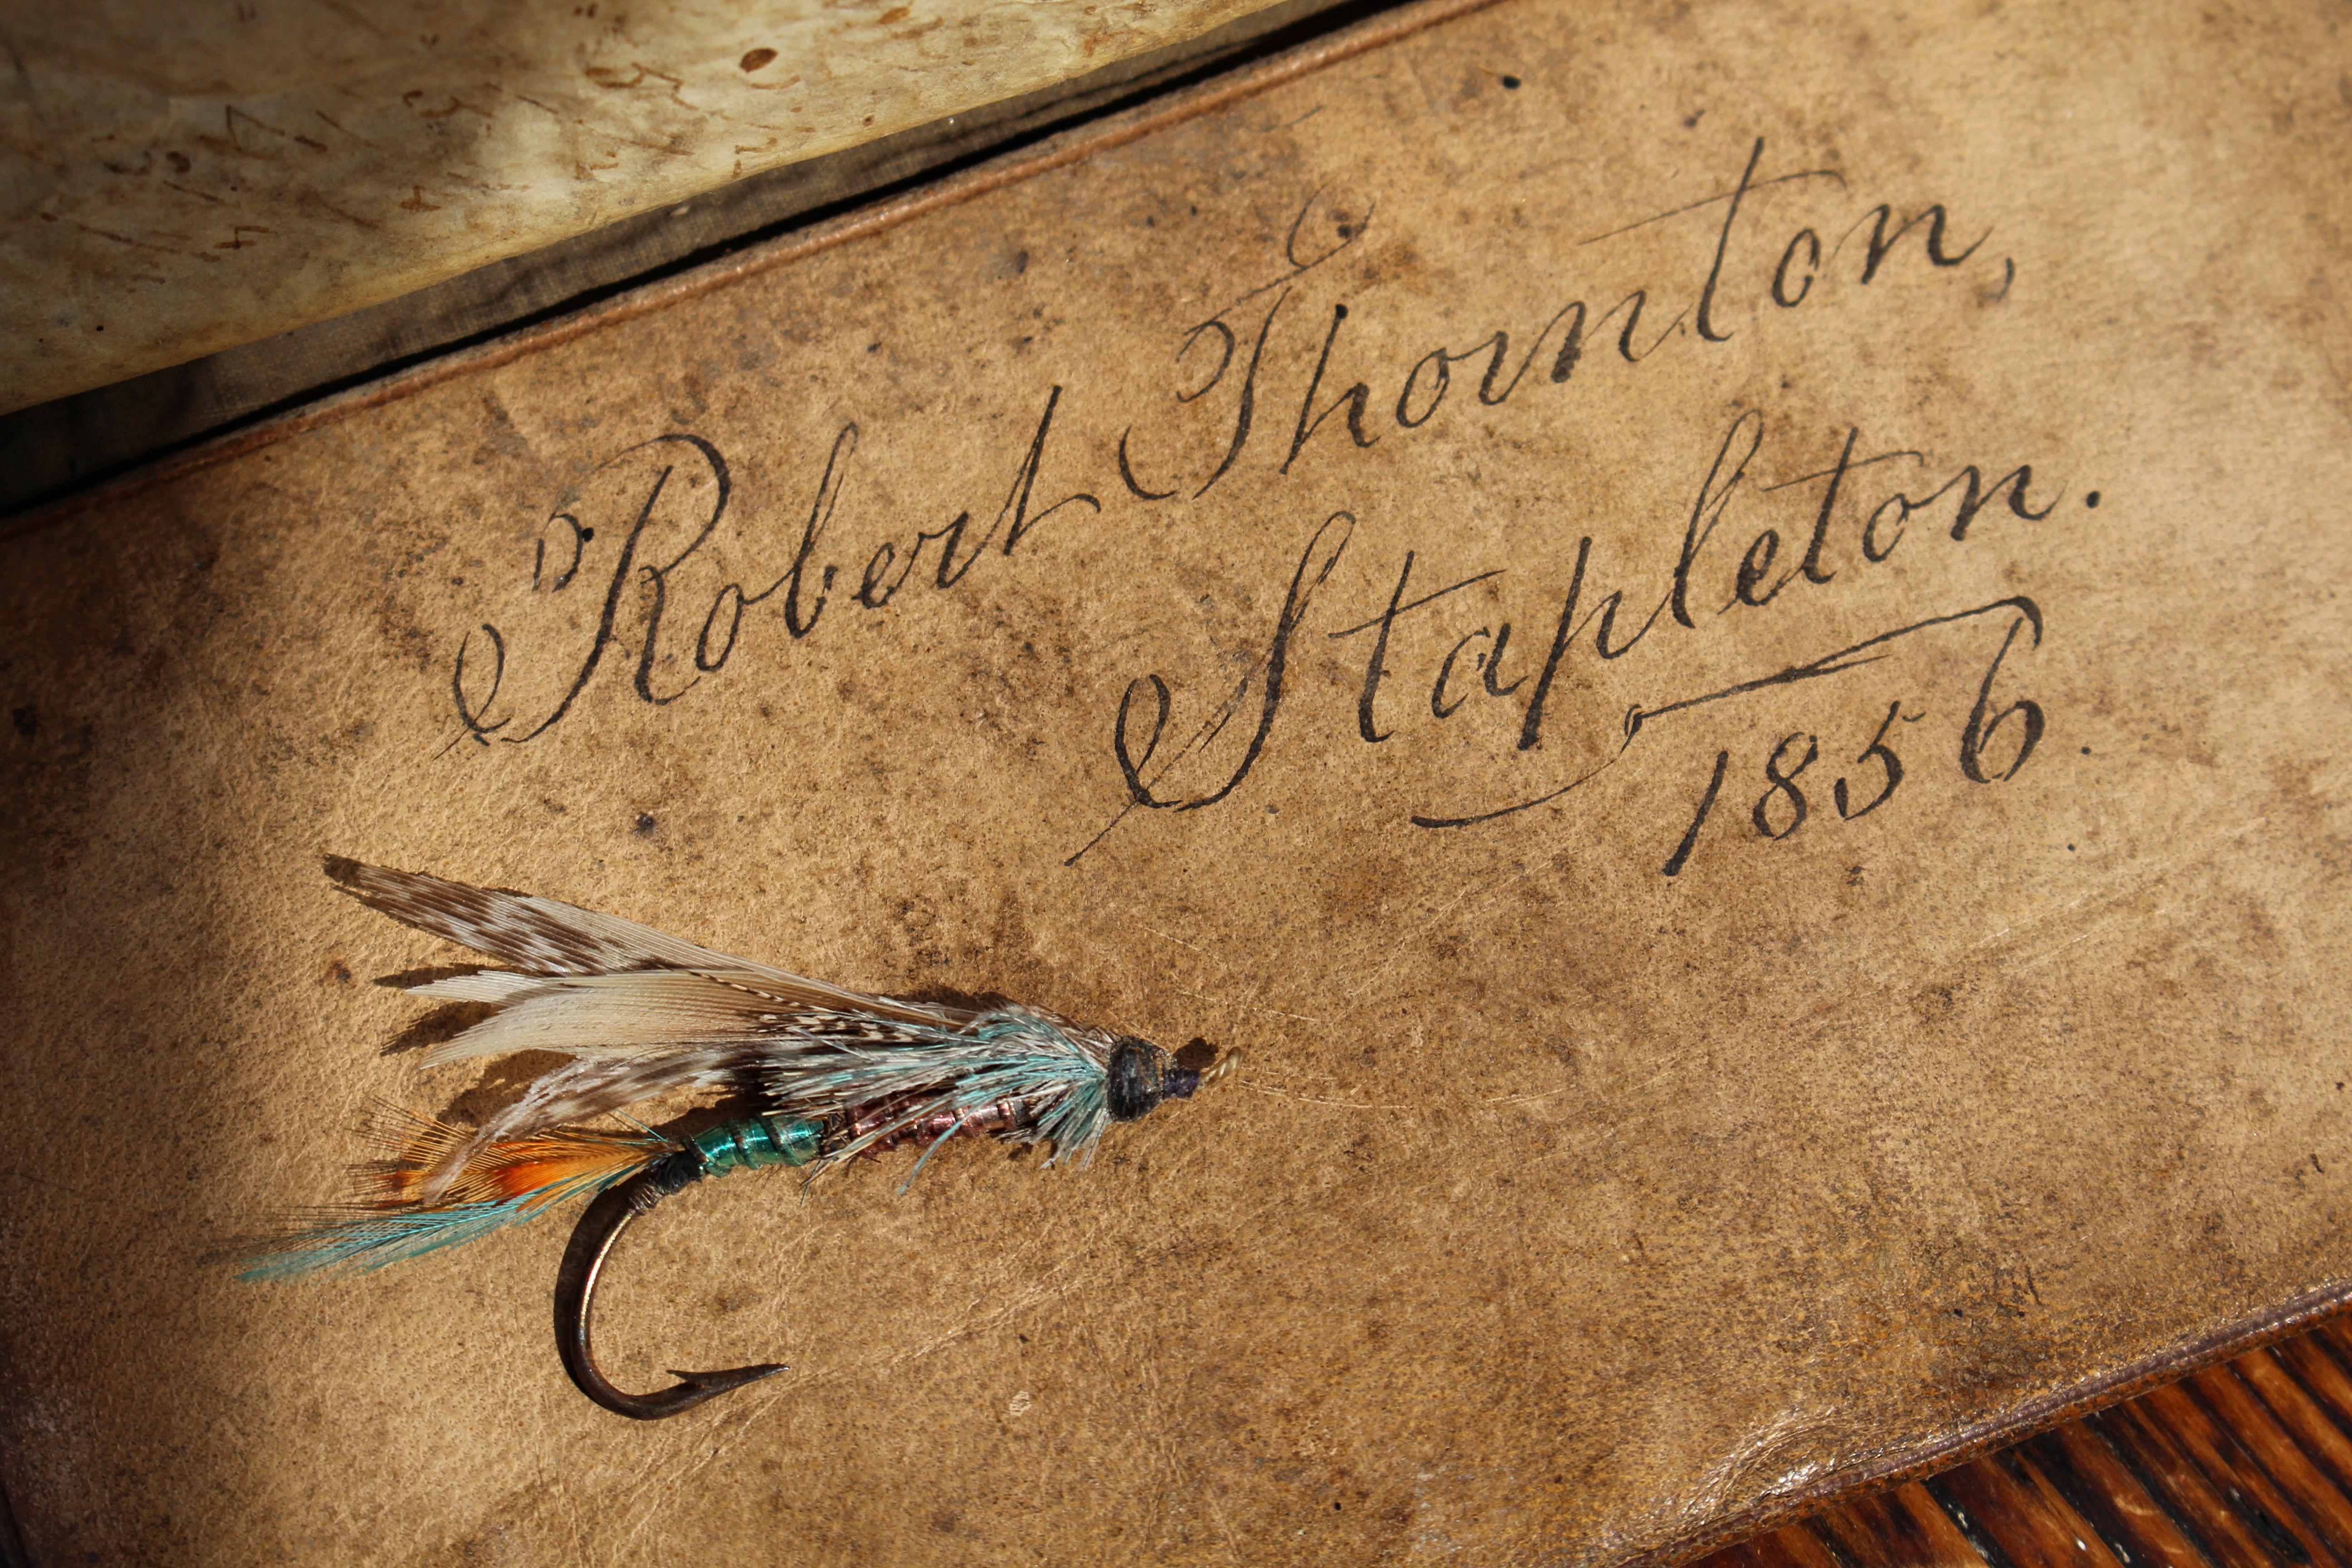 Robert Thornton,
Stapleton.
1856.